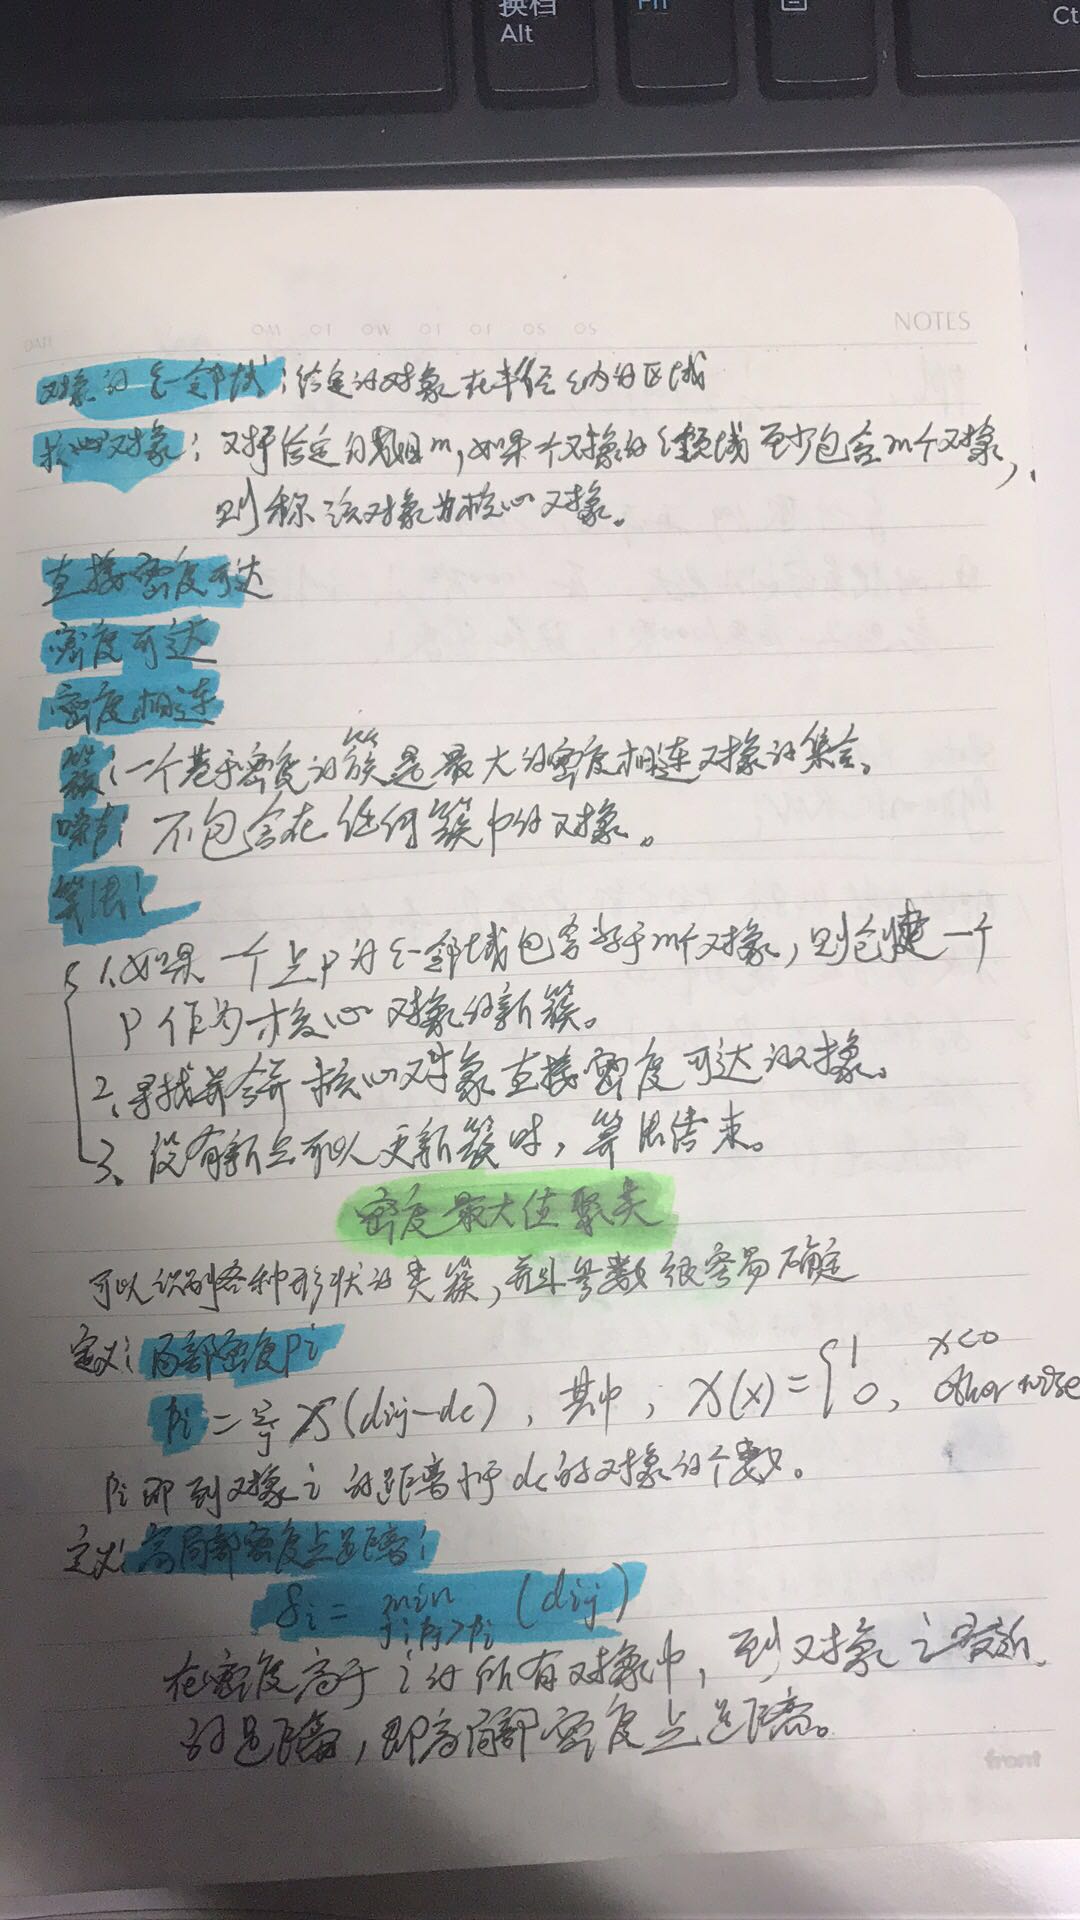 换档
Alt
Fn
Ct
NOTES
对象的ε-邻域:给定的对象在半径ε内的区域
核心对象:对于给定的数目m,如果一个对象的ε领域至少包含m个对象,
则称该对象为核心对象。
直接密度可达
密度可达
密度相连
簇:一个基于密度的簇是最大的密度相连对象的集合。
噪声:不包含在任何簇中的对象。
算法:
1.如果一个点P的ε-邻域包含多于m个对象,则创建一个
P作为核心对象的新簇。
2、寻找并合并核心对象直接密度可达的对象。
3、没有新点可以更新簇时,算法结束。
密度最大值聚类
可以识别各种形状的类簇,并且参数很容易确定
定义:局部密度ρi
ρi=∑j χ(dij-dc),其中,χ(x)={1 x<0
0, otherwise
ρi即到对象i的距离小于dc的对象的个数。
定义:高局部密度点距离:
δi= min j:ρj>ρi (dij)
在密度高于i的所有对象中,到对象i最近
的距离,即高局部密度点距离。
front